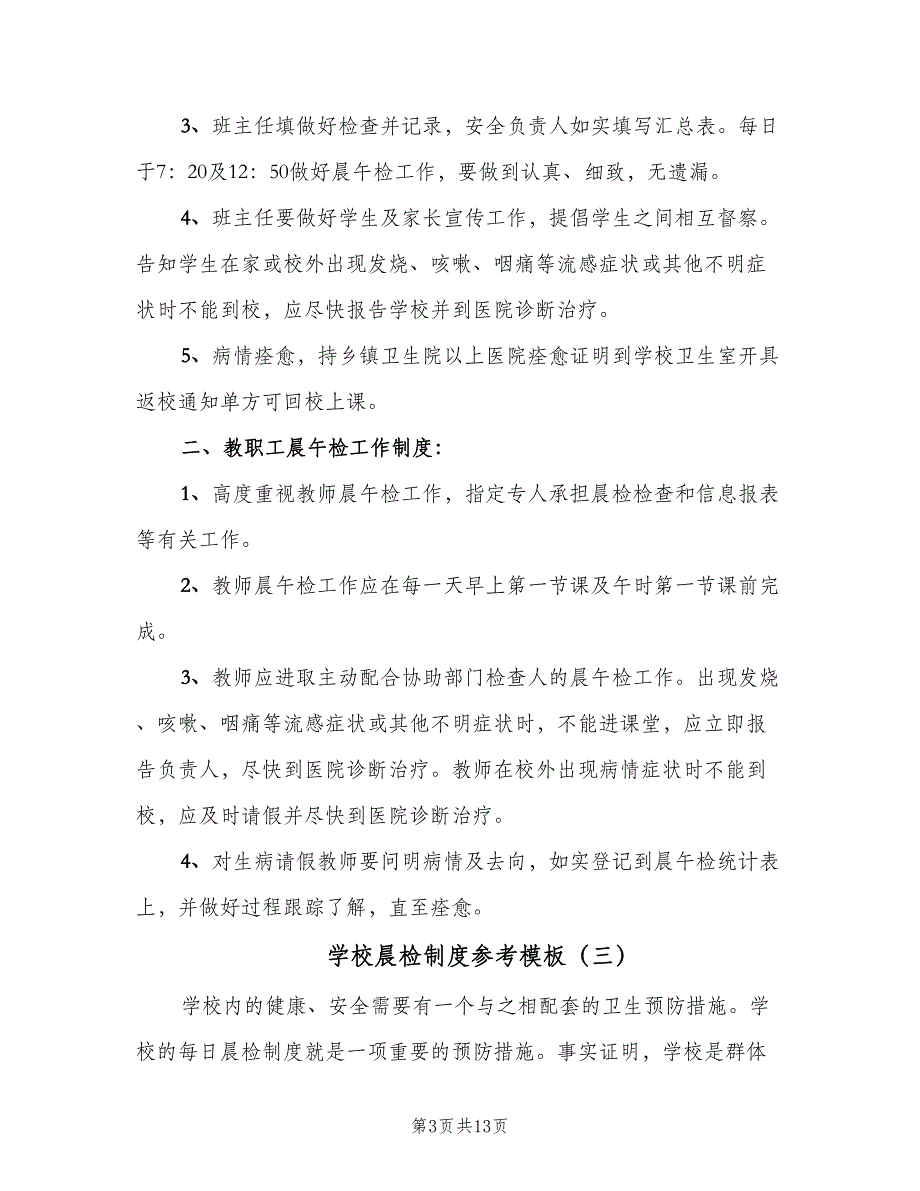 3、班主任填做好检查并记录，安全负责人如实填写汇总表。每日
于7：20及12：50做好晨午检工作，要做到认真、细致，无遗漏。
4、班主任要做好学生及家长宣传工作，提倡学生之间相互督察。
告知学生在家或校外出现发烧、咳嗽、咽痛等流感症状或其他不明症
状时不能到校，应尽快报告学校并到医院诊断治疗。
5、病情痊愈，持乡镇卫生院以上医院痊愈证明到学校卫生室开具
返校通知单方可回校上课。
二、教职工晨午检工作制度：
1、高度重视教师晨午检工作，指定专人承担晨检检查和信息报表
等有关工作。
2、教师晨午检工作应在每一天早上第一节课及午时第一节课前完
成。
3、教师应进取主动配合协助部门检查人的晨午检工作。出现发烧
、咳嗽、咽痛等流感症状或其他不明症状时，不能进课堂，应立即报
告负责人，尽快到医院诊断治疗。教师在校外出现病情症状时不能到
校，应及时请假并尽快到医院诊断治疗。
4、对生病请假教师要问明病情及去向，如实登记到晨午检统计表
上，并做好过程跟踪了解，直至痊愈。
学校晨检制度参考模板（三）
学校内的健康、安全需要有一个与之相配套的卫生预防措施。学
校的每日晨检制度就是一项重要的预防措施。事实证明，学校是群体
第3页共13页